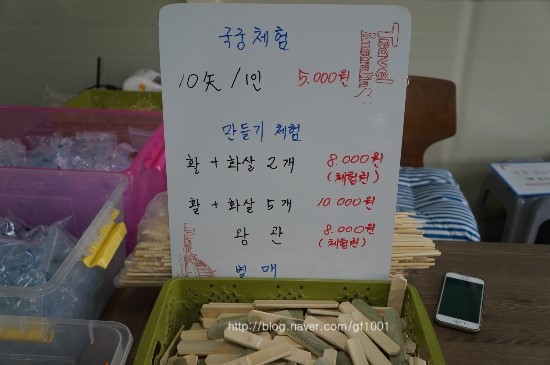 국궁 체험
Travel
Australia
10矢 /1인 5.000원
만들기 체험
활 + 화살 2개 8.000원
(체험권)
활 + 화살 5개 10.000원
왕관 8.000원
(체험권)
별매
http://blog.naver.com/gf1001